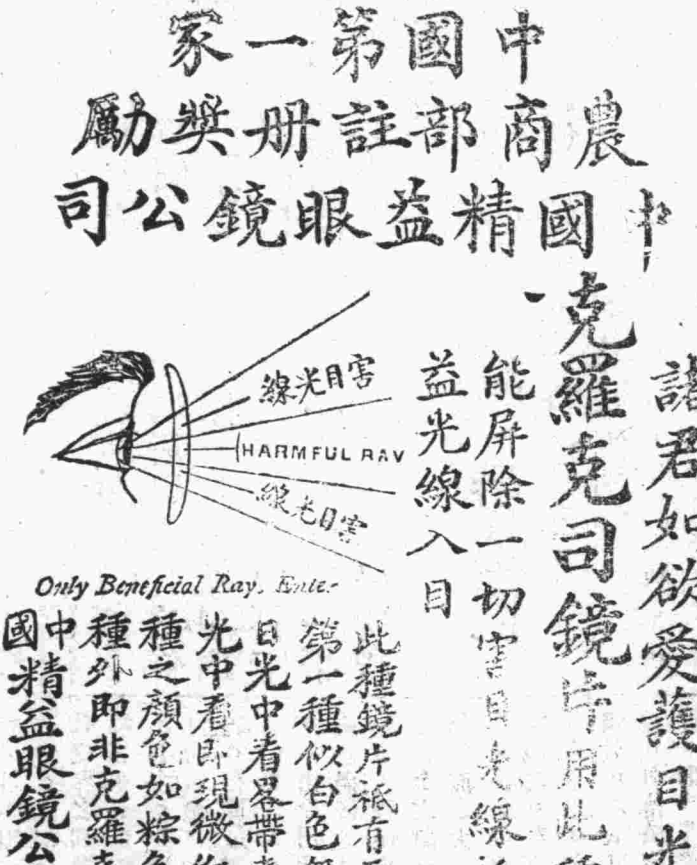 中國第一家
農商部註册獎勵
中國精益眼鏡公司
諸君如欲愛護目光
克羅克司鏡片用此
能屏除一切害目光線
益光線入目
害目光線
HARMFUL RAY
害目光線
Only Beneficial Ray, Enter
此種鏡片祗有
第一種似白色
日光中看畧帶
光中看即現微
種之顏色如粽
種外即非克羅
中國精益眼鏡公